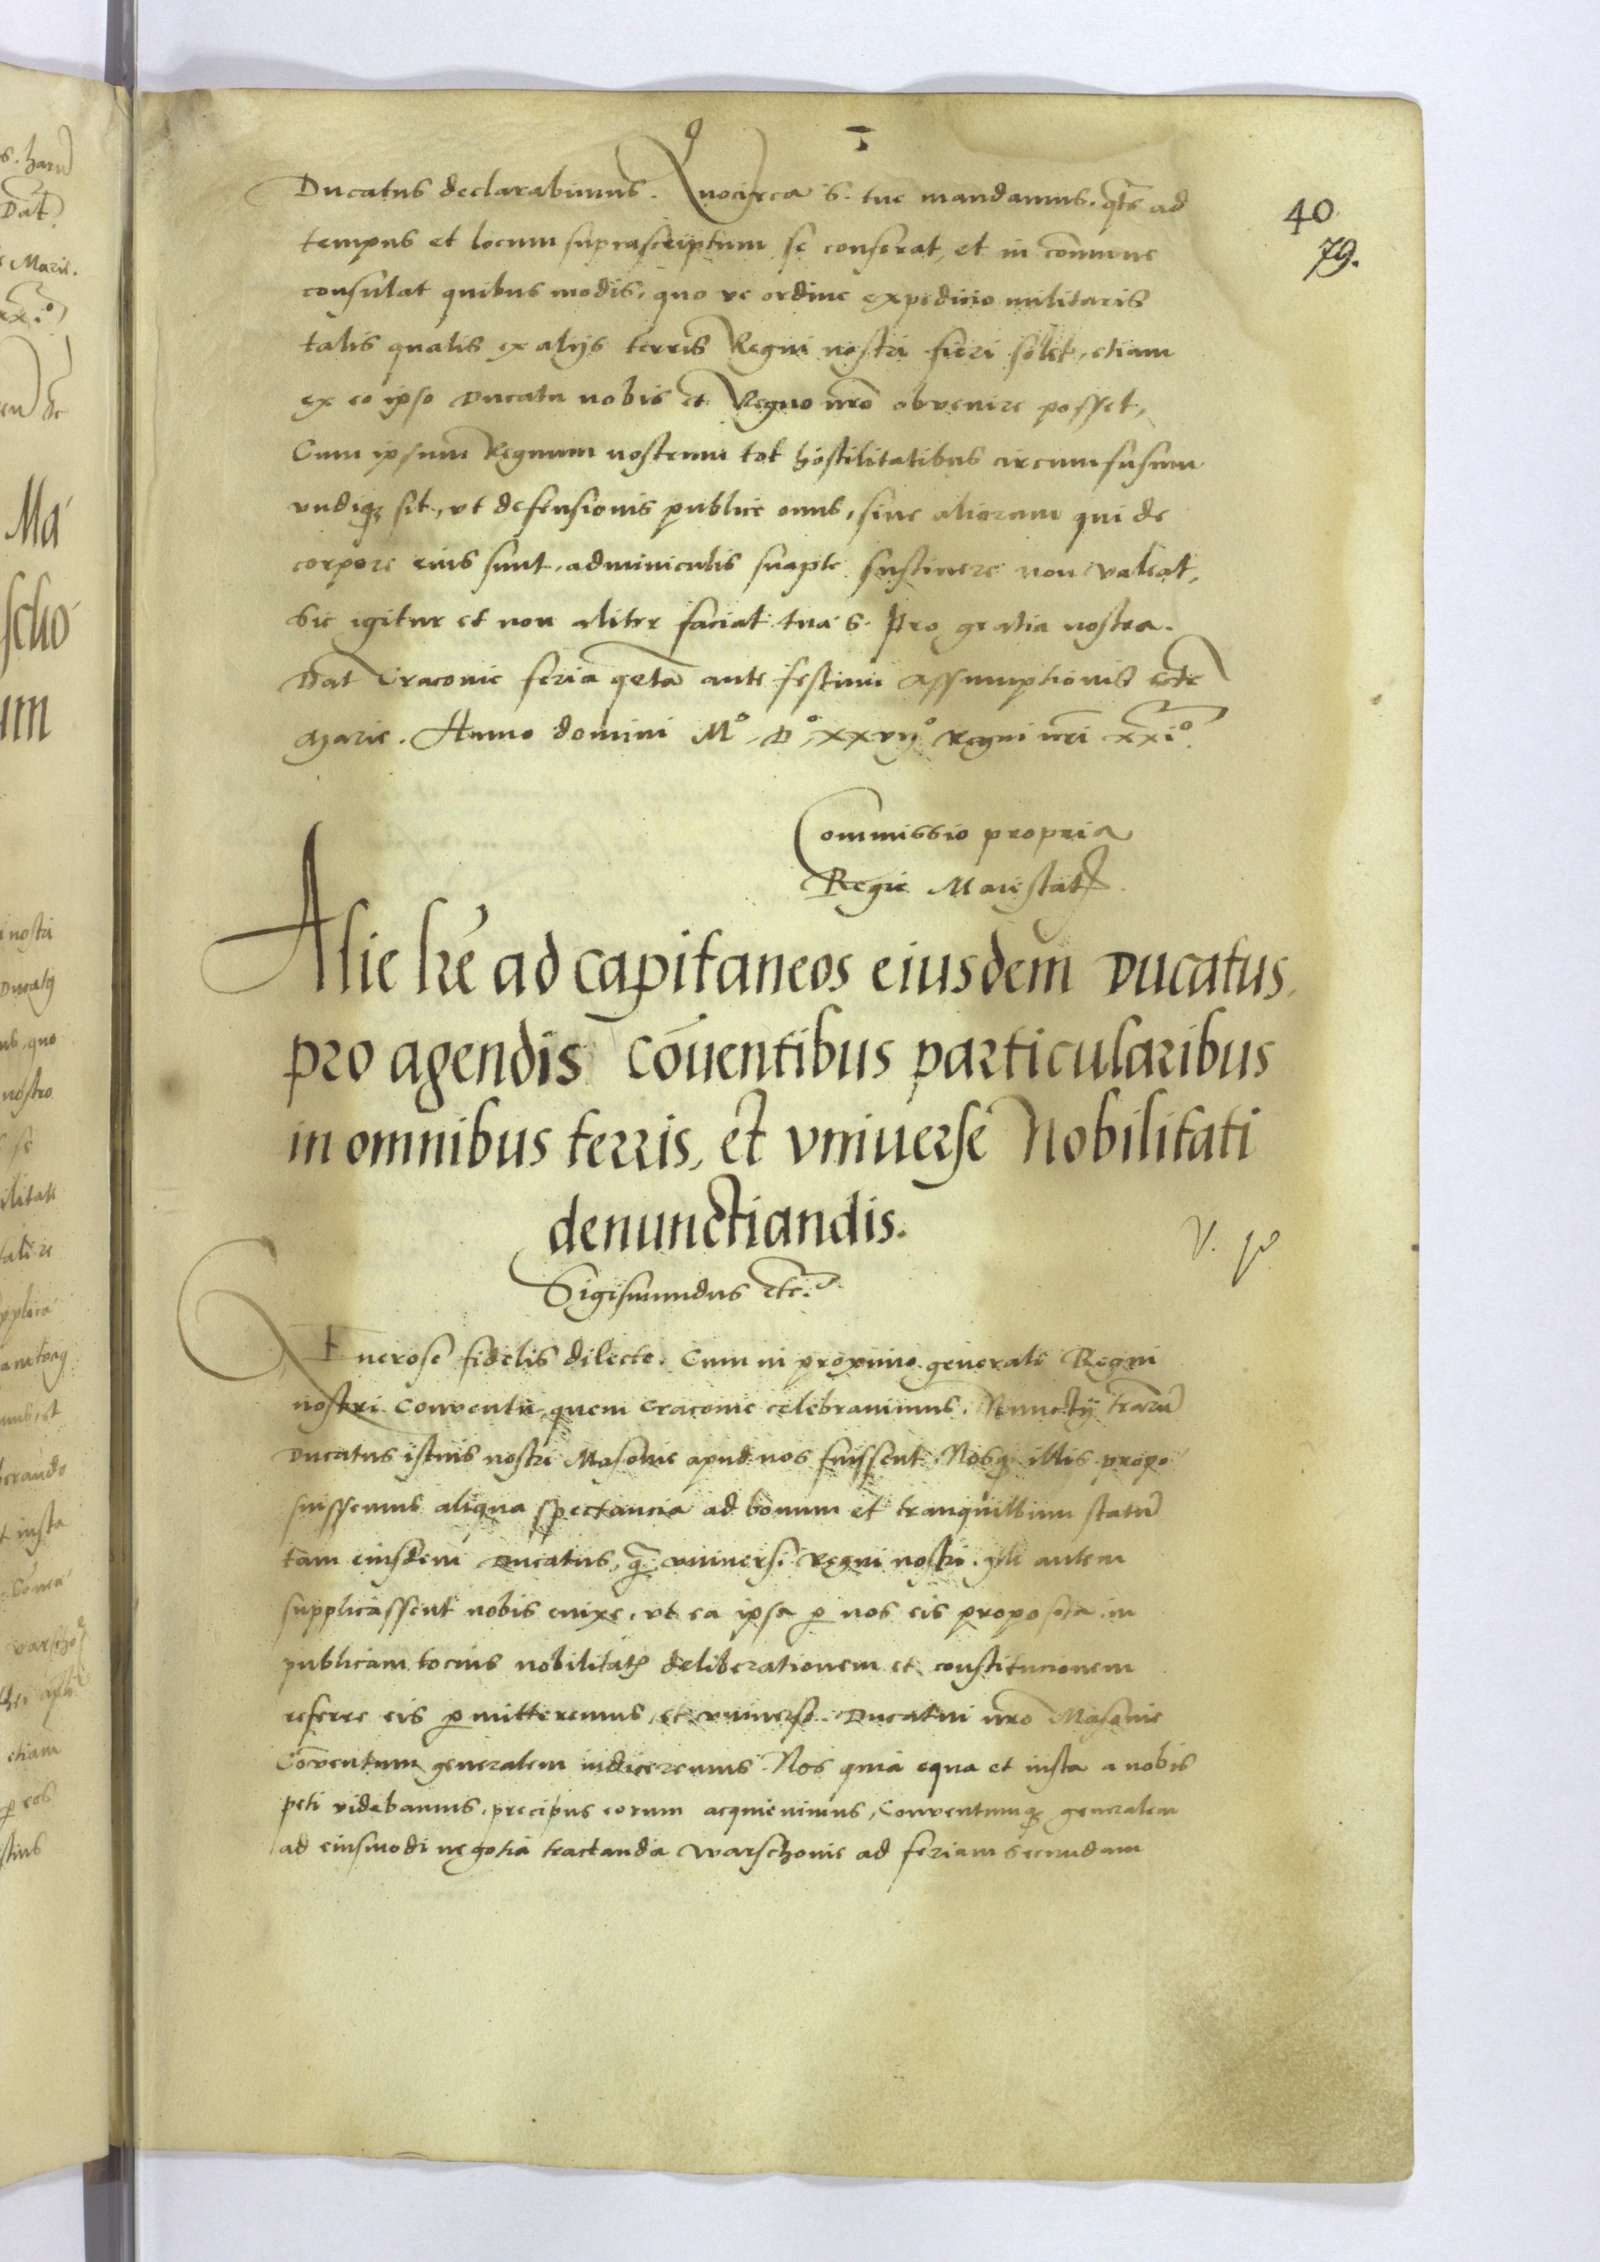 40
79.
Ducatus declarabimus. Quocirca S. tue mandamus. qts ad
tempus et locum suprascriptum se conferat, et in comune
consulat quibus modis, quo ve ordine expedicio militaris
talis qualis ex alijs terris Regni nostri fieri solet, etiam
ex eo ipso Ducatu nobis et Regno nro obvenire posset,
Cum ipsum Regnum nostrum tot hostilitatibus circumfusum
undiq; sit, ut defensionis publice onus, sine aliorum qui de
corpore eius sunt, adminiculis suapte sustinere non valeat,
Sic igitur et non aliter faciat tua S. pro gratia nostra.
Dat Cracovie feria ante festum Assumptionis
Marie. Anno domini M°. D°. xxvij° Regni nri xxi°.
Commissio propria
Regie Maiestat
Alie lre ad capitaneos eiusdem Ducatus,
pro agendis Coventibus particularibus
in omnibus terris, et universe Nobilitati
denunctiandis.
V.
Sigismundus etc.
Generose fidelis dilecte. Cum in proximo generali Regni
nostri Conventu, quem Cracovie celebravimus, Nunctij
Ducatus istius nostri Masovie apud nos fuissent, Nosq; illis propo
suissemus aliqua spectancia ad bonum et tranquillum statu
tam eiusdem Ducatus, q universi Regni nostri. Illi autem
supplicassent nobis enixe, ut ea ipsa p nos eis proposita in
publicam tocius nobilitat deliberationem et constitucionem
referre eis pmitteremus, et universo Ducatui nro Masovie
Coventum generalem indiceremus. Nos quia equa et iusta a nobis
peti videbamus, precipus eorum acquievimus, Conventumq; generalem
ad eiusmodi negotia tractanda Warschovie ad feriam secundam